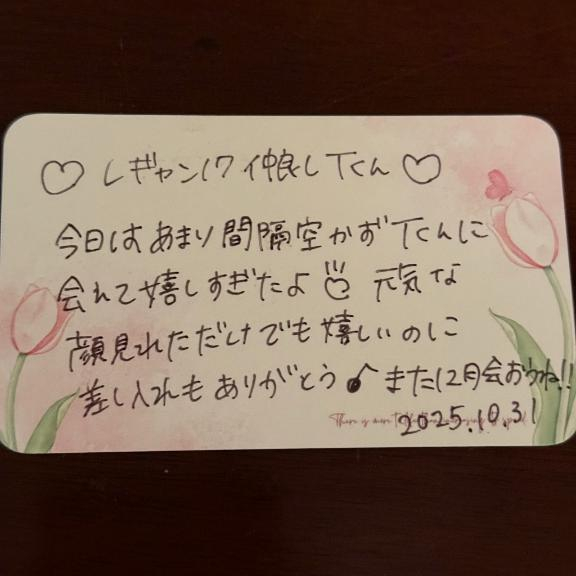 ♡ レギャン17 仲良しTくん ♡
今日はあまり間隔空かずTくんに
会えて嬉しすぎたよ 元気な
顔見れただけでも嬉しいのに
差し入れもありがとう また12月会おうね!!
There is more to
2025.10.31